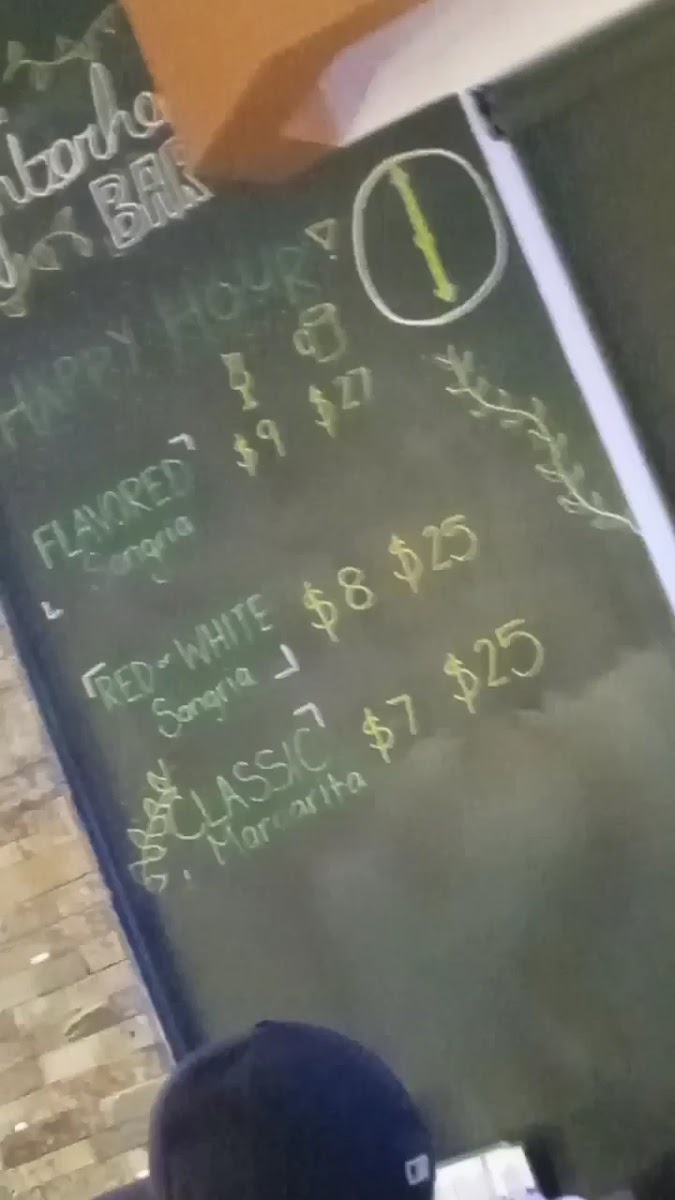 BAR
HAPPY HOUR
$9 $27
FLAVORED
Sangria
$8 $25
RED or WHITE
Sangria
$7 $25
CLASSIC
Margarita